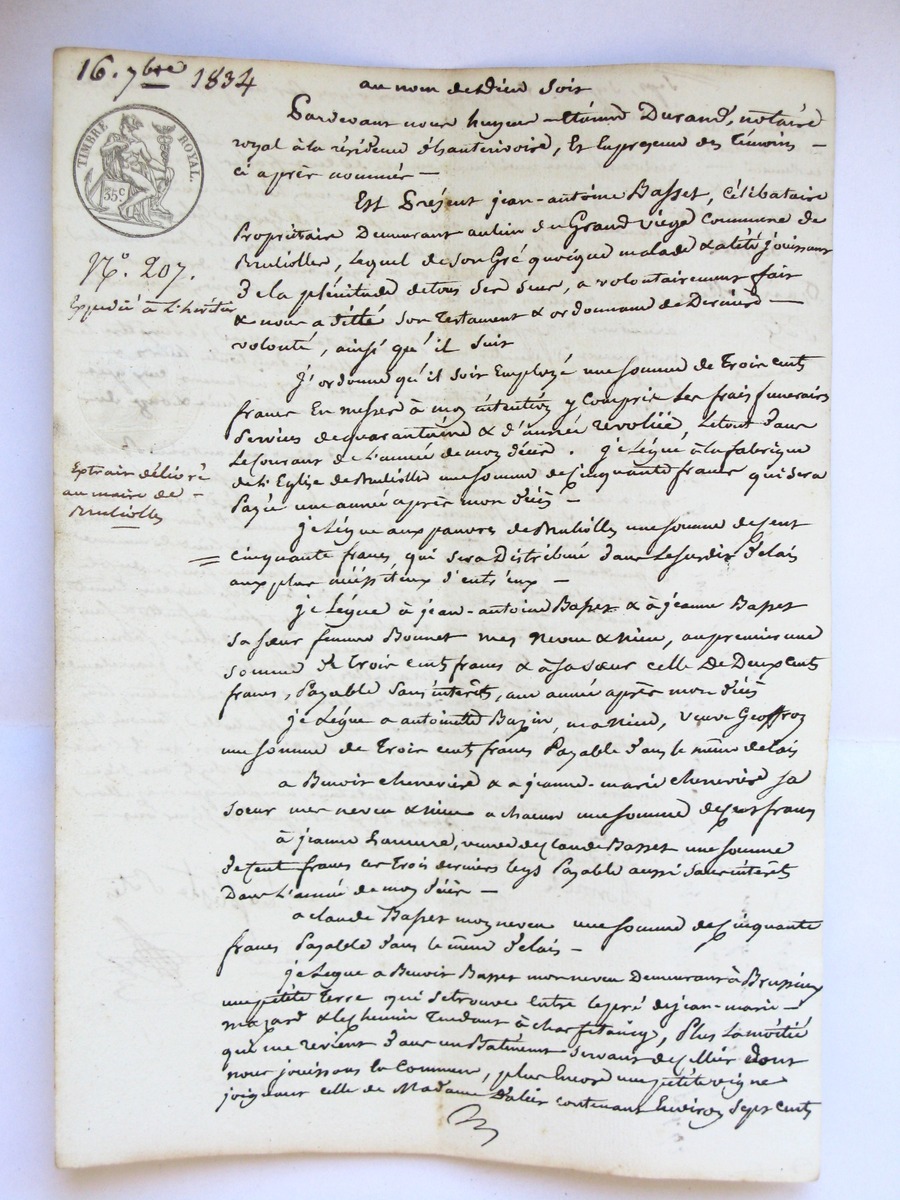 16. 7bre 1834
TIMBRE ROYAL.
35 c
N° 207.
Expedié à L'héritier
Extrait délivré
au maire de
Brulioles
au nom de dieu soit
Pardevant nous hugues-étienne Durand, notaire
royal à la résidence d'hauterivoire, Et En presence des Témoins
ci après nommés
Est Présent jean-antoine Basset, Célibataire
Propriétaire Demeurant au lieu du Grand viége Commune de
Brulioles, Lequel de son Gré quoique malade & alité jouissant
de la plénitude de tous ses sens, a volontairement fait
& nous a dicté son Testament & ordonnance de Dernière
volonté, ainsi qu'il suit
J'ordonne qu'il soit Employé une somme de Trois cents
francs En messes à mon intention y Compris Les frais funeraires
Services de quarantaine & d'année révolüe, Le tout dans
Le Courant de L'année de mon décès. je Légue à la fabrique
de L'Eglise de Brulioles une somme de Cinquante francs qui sera
Payée une année après mon décès
je Légue aux pauvres de Brulioles une somme de Cent
Cinquante francs qui sera Distribuée dans Le susdit délais
aux plus nécéssiteux d'entr'eux
je Légue à jean-antoine Basset & à jeanne Basset
sa sœur femme Bonnet mes neveu & niece, au premier une
somme de Trois cents francs & à sa sœur celle de Deux cents
francs, Payable sans intérêts, une année après mon décès
je Légue a antoinette Bazin, ma niece, veuve Geoffroy
une somme de Trois cents francs Payable dans le même delais
a Benoit cheneviere & a jeanne-marie cheneviere sa
soeur mes neveu & niece a chacun une somme de Cent francs
à jeanne veuve de Claude Basset une somme
de Cent francs ces Trois derniers legs Payable aussi sans intérêts
Dans L'année de mon décès
a claude Basset mon neveu une somme de Cinquante
francs Payable dans le même délais
je Legue a Benoit Basset mon neveu Demeurant à Brussieu
une pétite Terre qui se trouve entre le pré de jean-marie
mazard & le chemin Tendant à Plus La moitié
qui me revient dans un Batiment servant de Cellier dont
nous jouissons En Commun, plus Encore une petite vigne
joignant celle de Madame contenant Environ sept cents